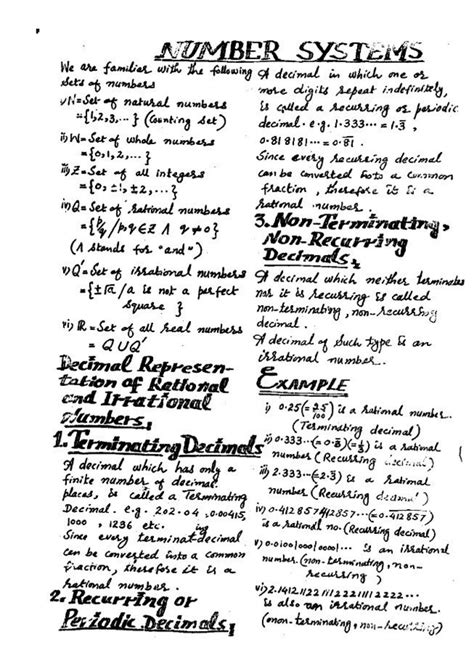 NUMBER SYSTEMS
We are familiar with the following
sets of numbers
i) N = Set of natural numbers
= {1,2,3,...} (Counting set)
ii) W = Set of whole numbers
= {0,1,2,...}
iii) Z = Set of all integers
= {0, ±1, ±2, ...}
iv) Q = Set of rational numbers
= {p/q / p,q ∈ Z ∧ q ≠ 0}
(∧ stands for "and")
v) Q' = Set of irrational numbers
= {±√a / a is not a perfect
square }
vi) R = Set of all real numbers
= Q ∪ Q'
Decimal Represen-
tation of Rational
and Irrational
Numbers
1. Terminating Decimals
A decimal which has only a
finite number of decimal
places, is called a Terminating
Decimal. e.g. 202.04, 0.00415,
1000, 1236 etc.
Since every terminating decimal
can be converted into a common
fraction, therefore it is a
rational number.
2. Recurring or
Periodic Decimals
A decimal in which one or
more digits repeat indefinitely,
is called a recurring or periodic
decimal. e.g. 1.333... = 1.3̅,
0.818181... = 0.8̅1̅.
Since every recurring decimal
can be converted into a common
fraction, therefore it is a
rational number.
3. Non-Terminating,
Non-Recurring
Decimals
A decimal which neither terminates
nor it is recurring is called
non-terminating, non-recurring
decimal.
A decimal of such type is an
irrational number.
EXAMPLE
i) 0.25 (= 25/100) is a rational number.
(Terminating decimal)
ii) 0.333... (= 0.3̅) (= 1/3) is a rational
number (Recurring decimal)
iii) 2.333... (= 2.3̅) is a rational
number (Recurring decimal)
iv) 0.412857412857... (= 0.412857)
is a rational no. (Recurring decimal)
v) 0.0100100010000... is an irrational
number. (non-terminating, non-
recurring)
vi) 2.141121122111222111122222...
is also an irrational number.
(non-terminating, non-recurring)